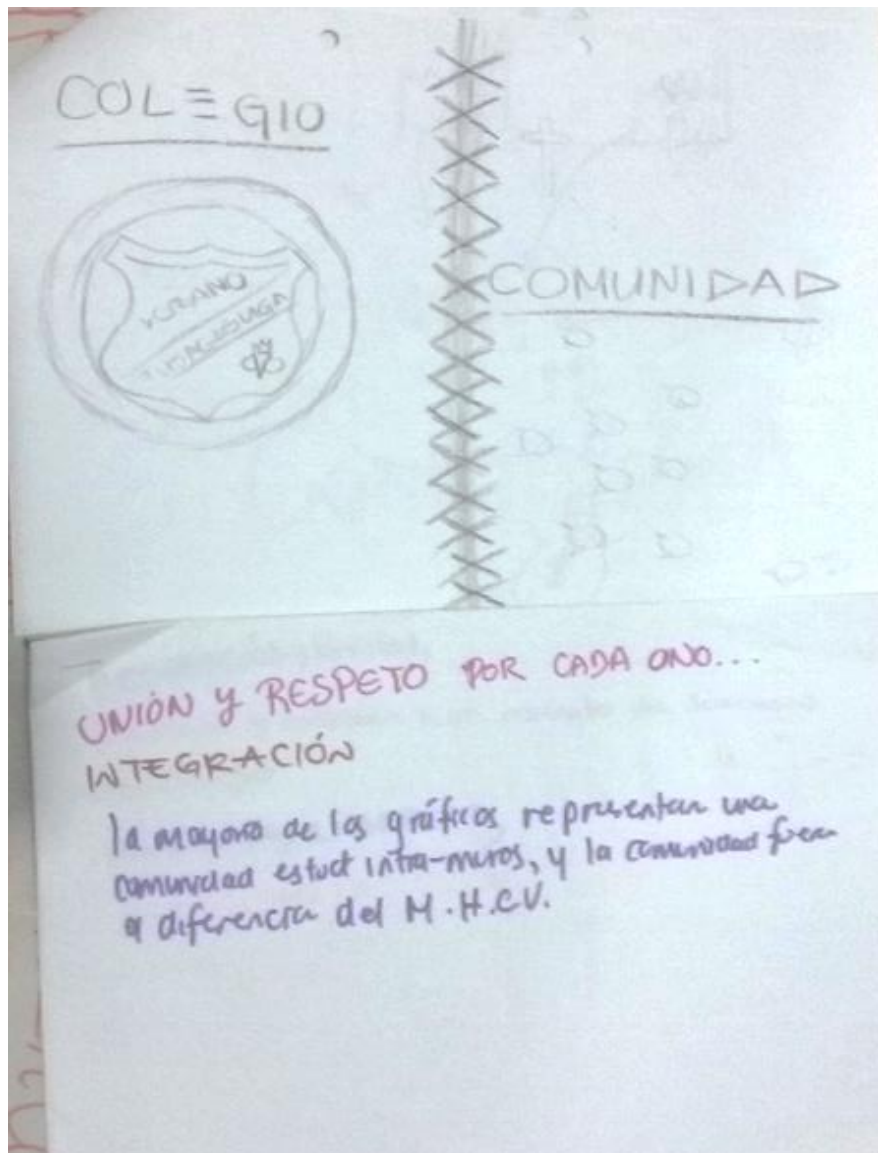 COLEGIO
COMUNIDAD
UNIÓN Y RESPETO POR CADA ONO...
INTEGRACIÓN
la mayoria de los gráficos representan una
comunidad estud intra-muros, y la comunidad fuera
a diferencia del M.H.CV.